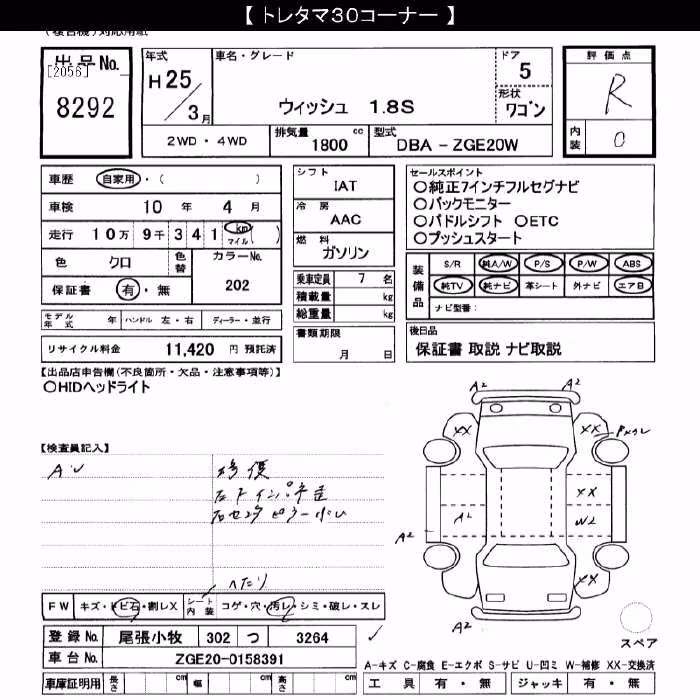 【 トレタマ30コーナー 】
（複合機）対応用紙
出品No.
[2056]
8292
年式
H25/3月
車名・グレード
ウィッシュ 1.8S
ドア
5
形状
ワゴン
2WD・4WD
排気量 1800 cc
型式 DBA - ZGE20W
評価点
R
内装
0
車歴 自家用・( )
車検 10 年 4 月
走行 10万 9千 3 4 1 km マイル ( )
色 クロ 色替
カラーNo. 202
保証書 有・無
モデル年式 年 ハンドル 左・右 ディーラー・並行
リサイクル料金 11,420 円 預託済
シフト
IAT
冷房
AAC
燃料
ガソリン
乗車定員 7 名
積載量 kg
総重量 kg
書類期限
月 日
セールスポイント
○純正7インチフルセグナビ
○バックモニター
○パドルシフト ○ETC
○プッシュスタート
装備品
S/R 純A/W P/S P/W ABS
純TV 純ナビ 革シート 外ナビ エアB
ナビ型番:
後日品
保証書 取説 ナビ取説
【出品店申告欄(不良箇所・欠品・注意事項等)】
○HIDヘッドライト
【検査員記入】
修復
A2 A2
XX XX
XX
A2 W2
A2
XX
A2
スペア
へたり
FW キズ・トビ石・割レX シート内装 コゲ・穴・汚レ・シミ・破レ・スレ
登録No. 尾張小牧 302 つ 3264
車台No. ZGE20-0158391
車庫証明用 長さ cm 幅 cm 高さ cm
A-キズ C-腐食 E-エクボ S-サビ U-凹ミ W-補修 XX-交換済
工具 有・無 ジャッキ 有・無